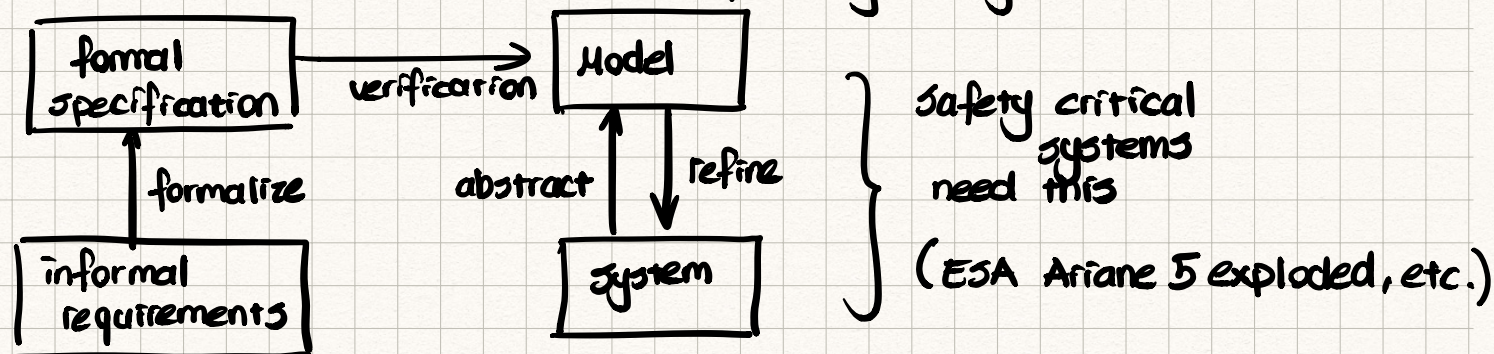 formal
specification
verification
Model
formalize
abstract
refine
informal
requirements
system
safety critical
systems
need this
(ESA Ariane 5 exploded, etc.)